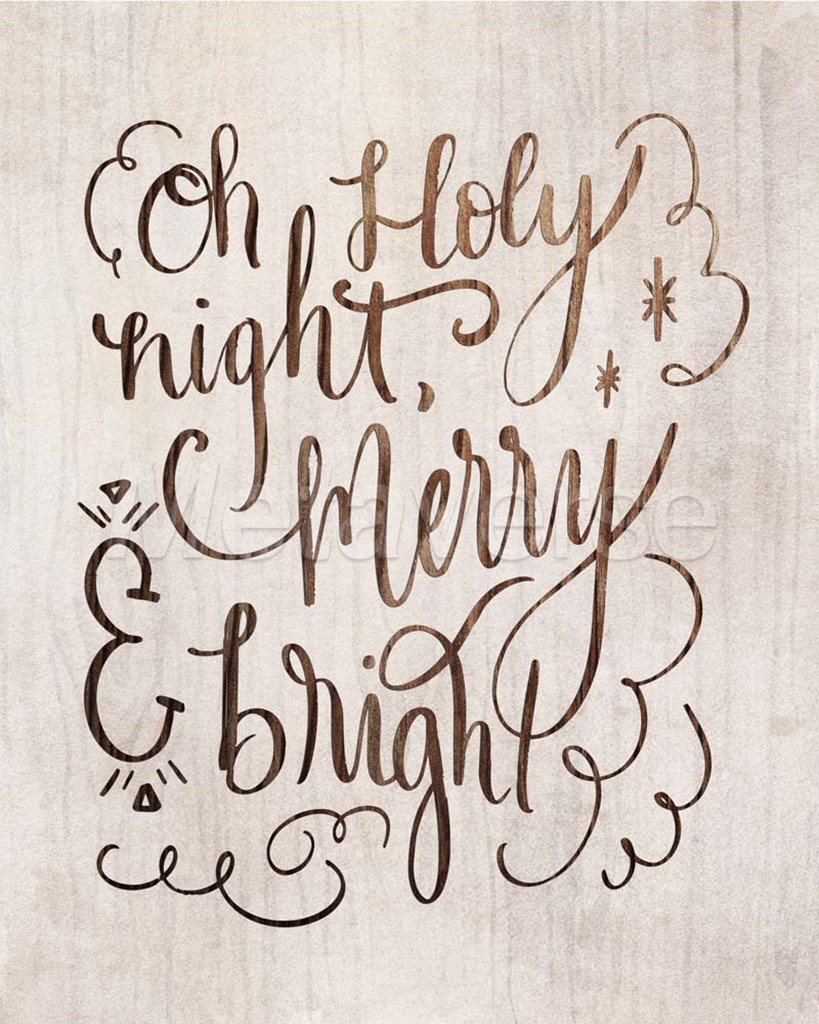 Oh Holy
night,
Merry
& bright
Metaverse